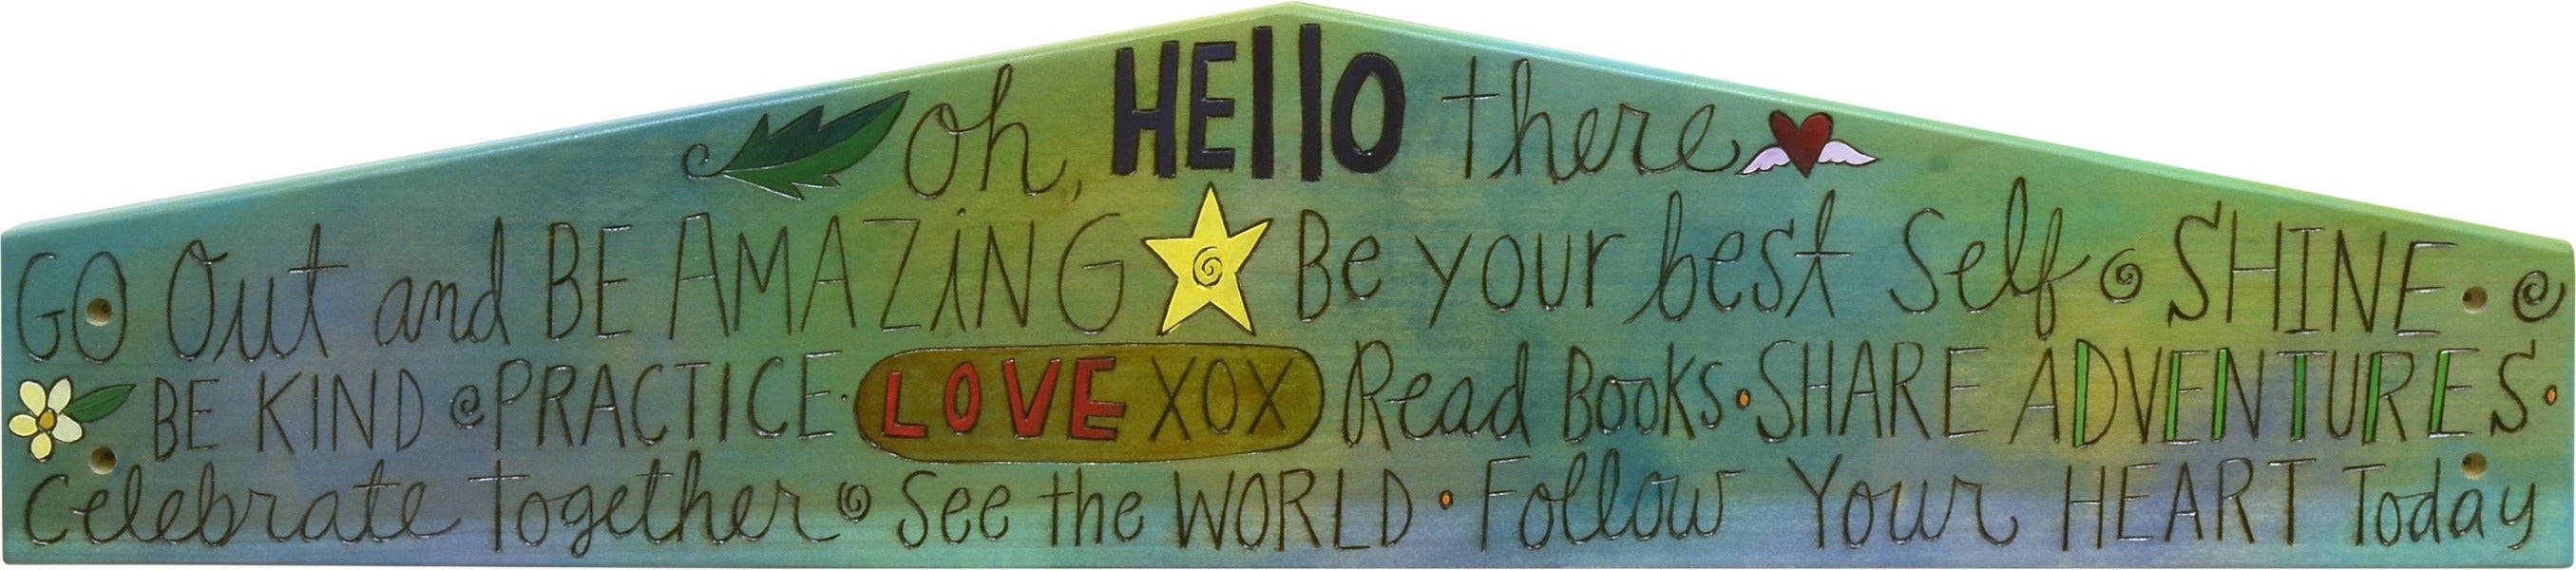 oh, HEllO there
GO Out and BE AMAZiNG Be your best Self SHINE
BE KIND PRACTICE LOVE XOX Read Books • SHARE ADVENTURES •
Celebrate Together See the WORLD • Follow Your HEART Today